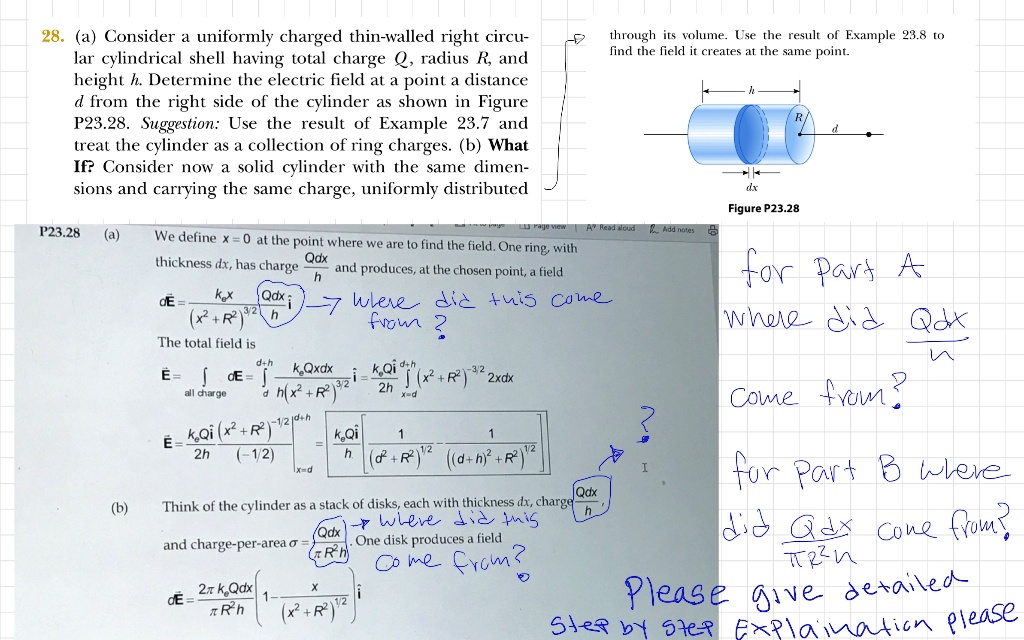 28. (a) Consider a uniformly charged thin-walled right circu-
lar cylindrical shell having total charge Q, radius R, and
height h. Determine the electric field at a point a distance
d from the right side of the cylinder as shown in Figure
P23.28. Suggestion: Use the result of Example 23.7 and
treat the cylinder as a collection of ring charges. (b) What
If? Consider now a solid cylinder with the same dimen-
sions and carrying the same charge, uniformly distributed
through its volume. Use the result of Example 23.8 to
find the field it creates at the same point.
h
R
d
dx
Figure P23.28
Page view | A Read aloud Add notes
P23.28 (a) We define x = 0 at the point where we are to find the field. One ring, with
thickness dx, has charge Qdx/h and produces, at the chosen point, a field
dE⃗ = kₑx/(x² + R²)^3/2 Qdx/h î → Where did this come
from?
The total field is
E⃗ = ∫ all charge dE⃗ = ∫ d d+h kₑQxdx/h(x² + R²)^3/2 î = kₑQî/2h ∫ x=d d+h (x² + R²)^-3/2 2xdx
E⃗ = kₑQî/2h (x² + R²)^-1/2/(-1/2) | x=d d+h = kₑQî/h [1/(d² + R²)^1/2 - 1/((d+h)² + R²)^1/2]
?
(b) Think of the cylinder as a stack of disks, each with thickness dx, charge Qdx/h,
→ where did this
and charge-per-area σ = Qdx/πR²h. One disk produces a field
come from?
dE⃗ = 2πkₑQdx/πR²h (1 - x/(x² + R²)^1/2) î
for part A
where did Qdx/h
come from?
for part B where
did Qdx/πR²h come from?
Please give detailed
Step by step Explaination please